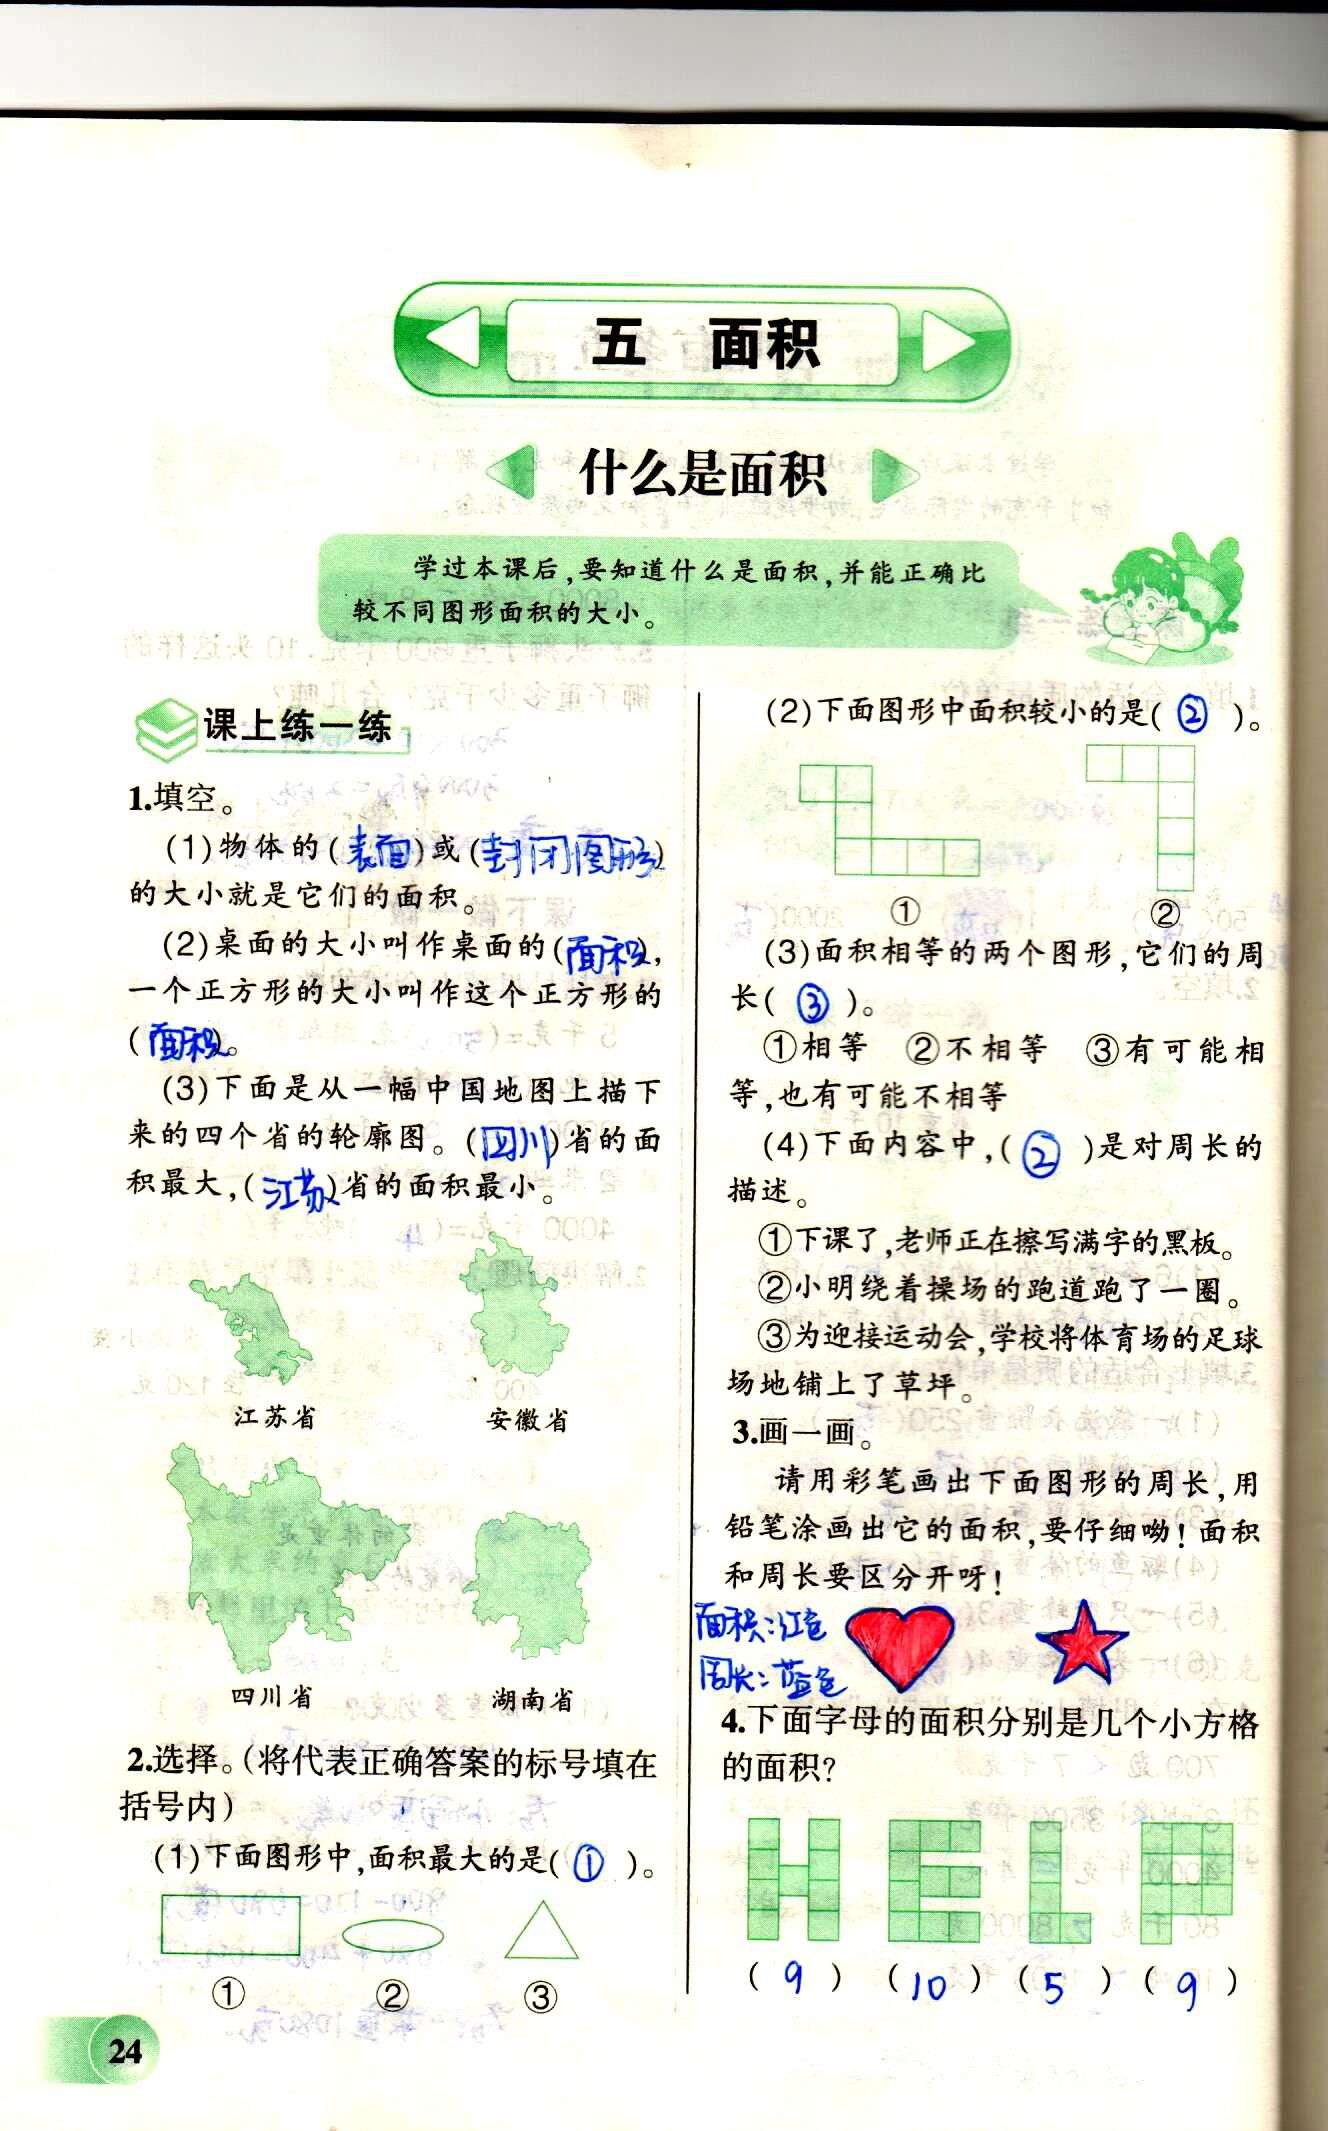 五 面积
什么是面积
学过本课后,要知道什么是面积,并能正确比
较不同图形面积的大小。
课上练一练
1.填空。
(1)物体的(表面)或(封闭图形)
的大小就是它们的面积。
(2)桌面的大小叫作桌面的(面积),
一个正方形的大小叫作这个正方形的
(面积)。
(3)下面是从一幅中国地图上描下
来的四个省的轮廓图。(四川)省的面
积最大,(江苏)省的面积最小。
江苏省 安徽省
四川省 湖南省
2.选择。(将代表正确答案的标号填在
括号内)
(1)下面图形中,面积最大的是(①)。
① ② ③
24
(2)下面图形中面积较小的是(②)。
① ②
(3)面积相等的两个图形,它们的周
长(③)。
①相等 ②不相等 ③有可能相
等,也有可能不相等
(4)下面内容中,(②)是对周长的
描述。
①下课了,老师正在擦写满字的黑板。
②小明绕着操场的跑道跑了一圈。
③为迎接运动会,学校将体育场的足球
场地铺上了草坪。
3.画一画。
请用彩笔画出下面图形的周长,用
铅笔涂画出它的面积,要仔细呦!面积
和周长要区分开呀!
面积:红色
周长:蓝色
4.下面字母的面积分别是几个小方格
的面积?
HELP
(9) (10) (5) (9)